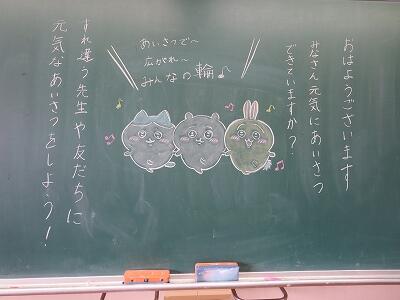 おはようございます
みなさん元気にあいさつ
できていますか?
あいさつで〜
広がれ〜
みんなの輪♪
すれ違う先生や友だちに
元気なあいさつをしよう!